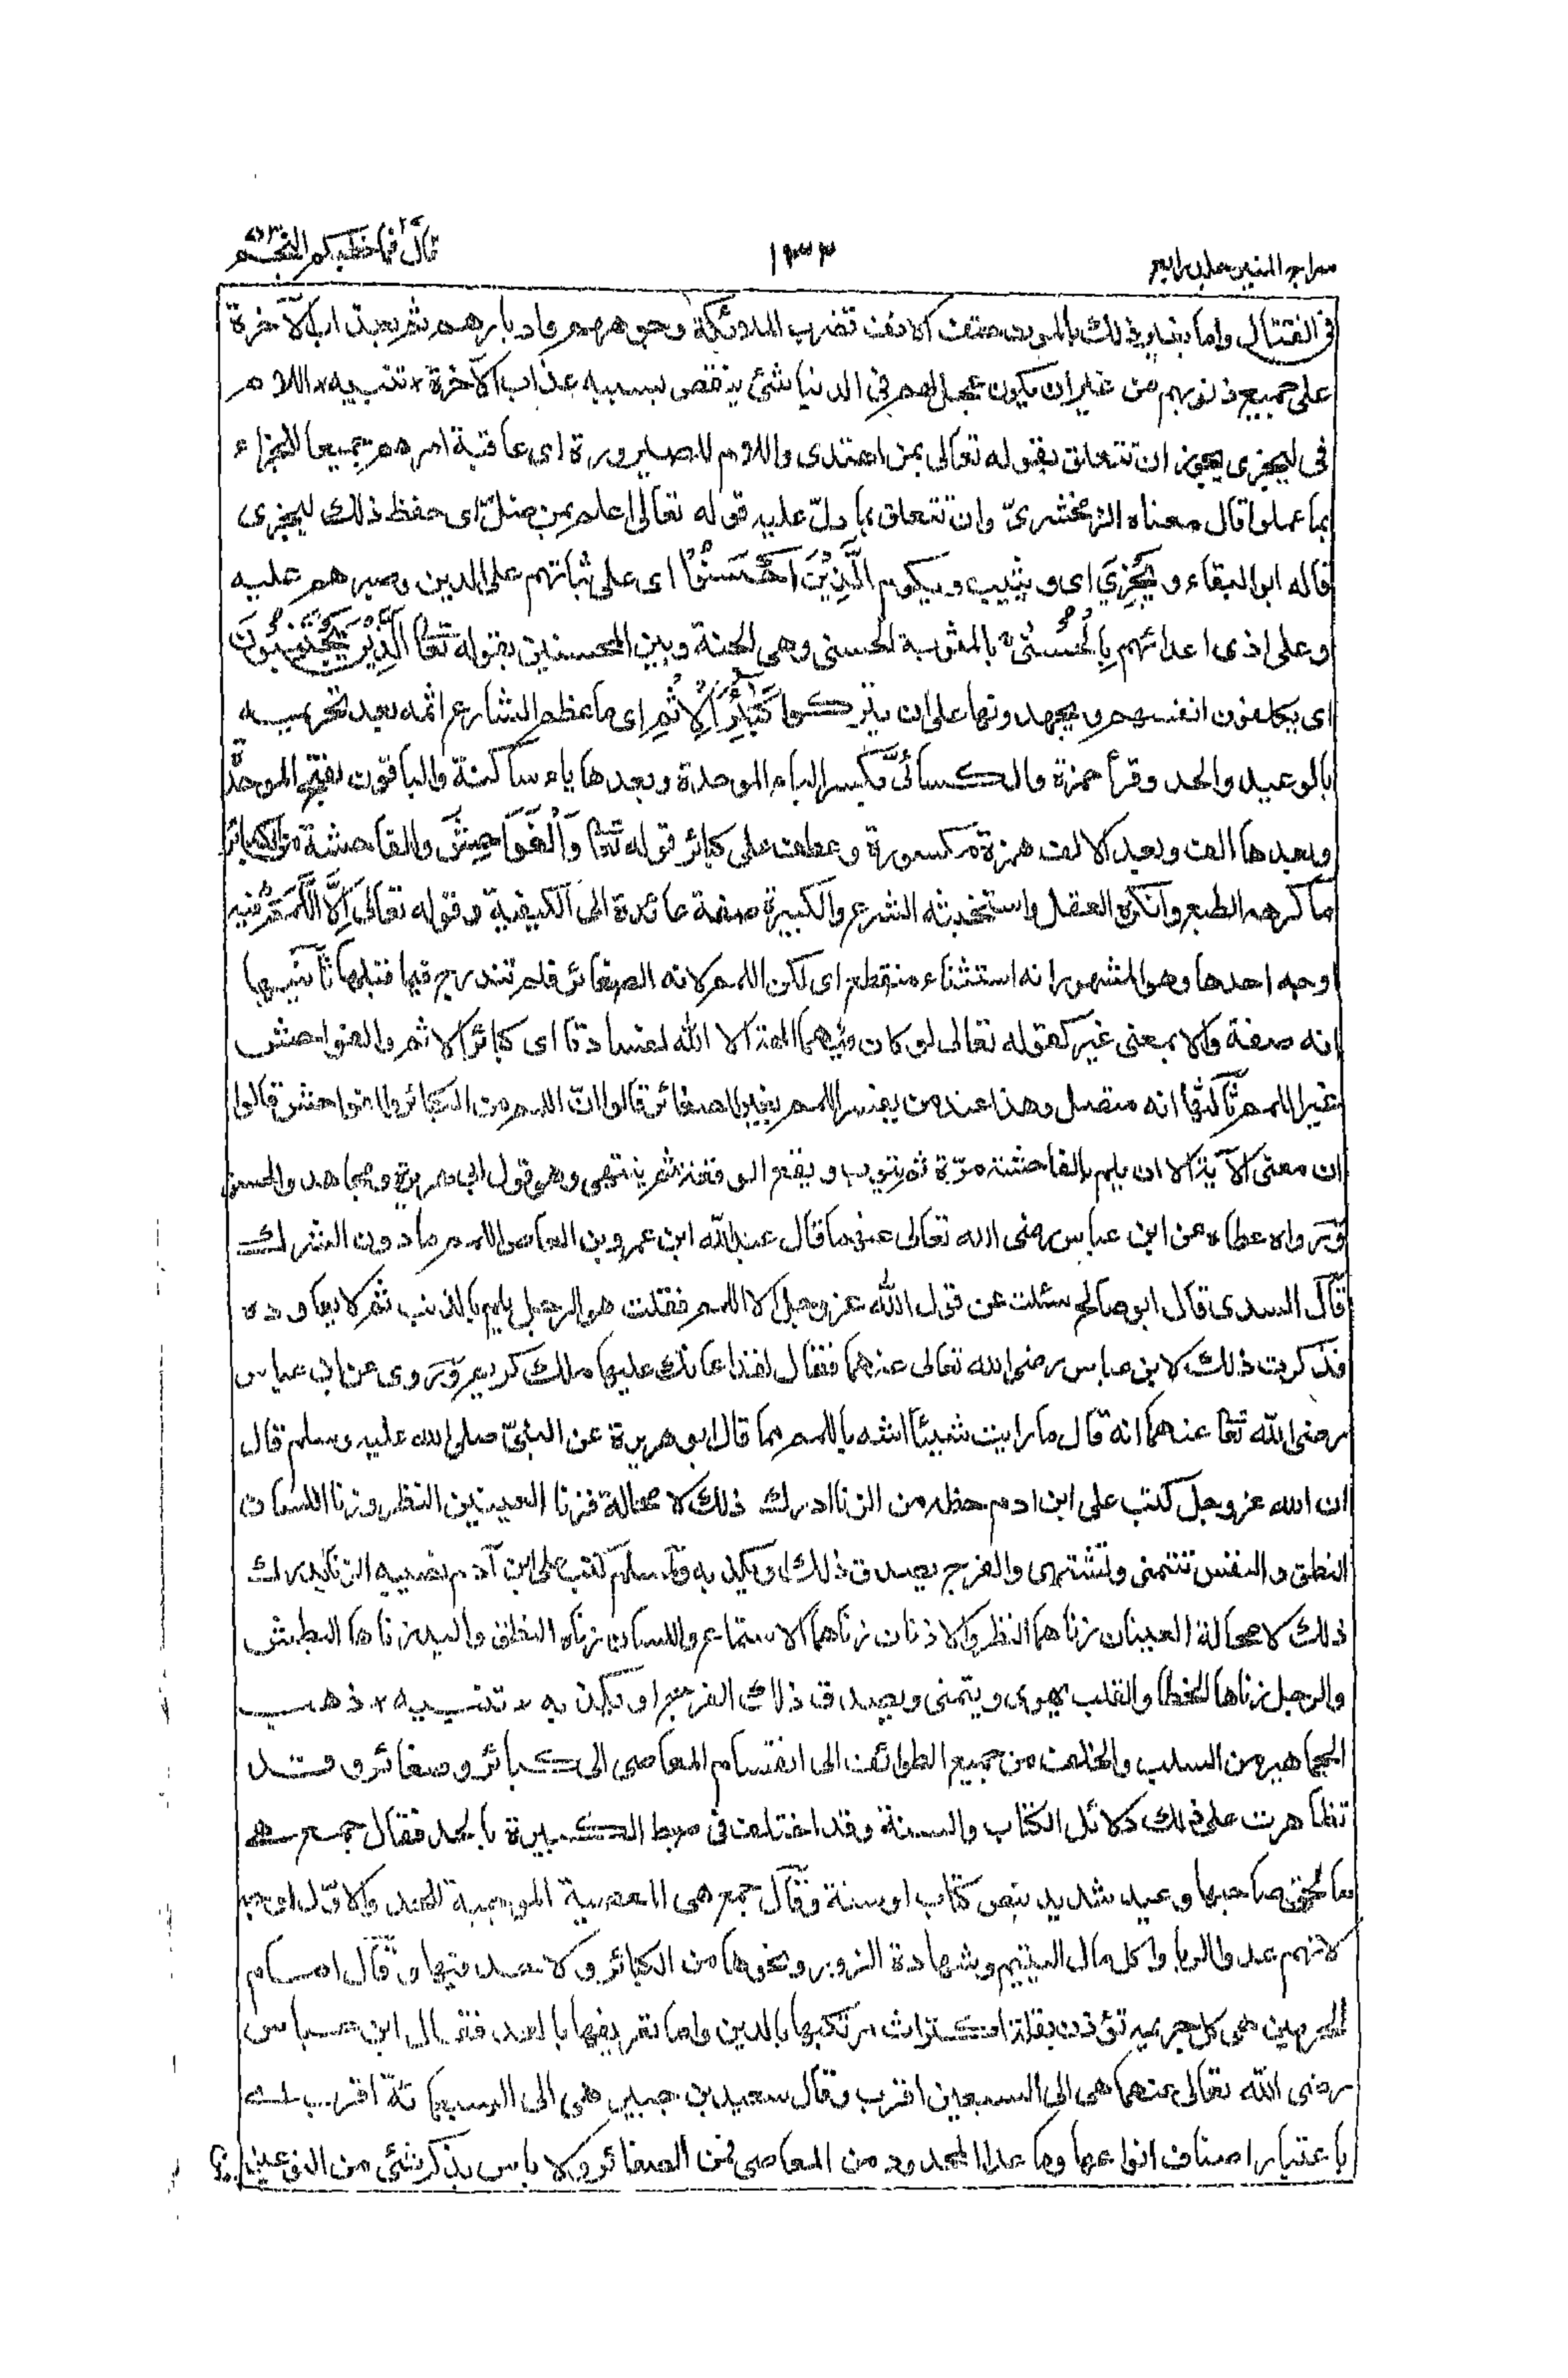 سراج المنير جلد رابع
١٣٣
قال فما خطبكم النجم ٥٣
فى القتال واما بغير ذلك بالموت حتف الانف تضرب الملائكة وجوههم وادبارهم ثم بعذاب الآخرة
على جميع ذنوبهم من غير ان يكون عجل لهم فى الدنيا شئ ينقص بسببه عذاب الآخرة * تنبيه * اللام
فى ليجزى يجوز ان تتعلق بقوله تعالى بمن اهتدى واللام للصيرورة اى عاقبة امرهم جميعا للجزاء
بما عملوا قال معناه الزمخشرىّ وان تتعلق بما دلّ عليه قوله تعالى اعلم بمن ضلّ اى حفظ ذلك ليجزى
قاله ابو البقاء وَيَجْزِيَ اى ويثيب ويكرم الَّذِيْنَ اَحْسَنُوْا اى على ثباتهم على الدين وصبرهم عليه
وعلى اذى اعدائهم بِالْحُسْنٰى بالمثوبة الحسنى وهى الجنة وبين المحسنين بقوله تعا اَلَّذِيْنَ يَجْتَنِبُوْنَ
اى يكلفون انفسهم ويجهدونها على ان يتركوا كَبٰٓئِرَ الْاِثْمِ اى ما عظم الشارع اثمه بعد تحريمه
بالوعيد والحد وقرأ حمزة والكسائىّ بكسر الباء الموحدة وبعدها ياء ساكنة والباقون بفتح الموحدة
وبعدها الف وبعد الالف همزة مكسورة وعطف على كبائر قوله تعا وَالْفَوَاحِشَ والفاحشة من الكبائر
ما كرهه الطبع وانكره العقل واستخبثه الشرع والكبيرة صفة عائدة الى الكيفية وقوله تعالى اِلَّا اللَّمَمَ فيه
اوجه احدها وهو المشهور انه استثناء منقطع اى لكن اللمم لانه الصغائر فلم تندرج فيما قبلها ثانيها
انه صفة والا بمعنى غير كقوله تعالى لو كان فيهما الهة الا الله لفسدتا اى كبائر الاثم والفواحش
غير اللمم ثالثها انه متصل وهذا عند من يفسر اللمم بغير الصغائر قالوا انّ اللمم من الكبائر والفواحش قالوا
ان معنى الآية الا ان يلم بالفاحشة مرّة ثم يتوب ويقع الوقعة ثم ينتهى وهو قول ابى هريرة ومجاهد والحسن
ورواه عطاء عن ابن عباس رضى الله تعالى عنهما قال عبد الله ابن عمرو بن العاص اللمم ما دون الشرك
قال السدى قال ابو صالح سئلت عن قول الله عز وجل الا اللمم فقلت هو الرجل يلم بالذنب ثم لا يعاوده
فذكرت ذلك لابن عباس رضى الله تعالى عنهما فقال لقد اعانك عليها ملك كريم وروى عن ابن عباس
رضى الله تعا عنهما انه قال ما رايت شيئا اشبه باللمم مما قال ابو هريرة عن النبىّ صلى الله عليه وسلم قال
ان الله عز وجل كتب على ابن ادم حظه من الزنا ادرك ذلك لا محالة فزنا العينين النظر وزنا اللسان
النطق والنفس تتمنى وتشتهى والفرج يصدق ذلك او يكذبه ولمسلم كتب على ابن آدم نصيبه الزنا يدرك
ذلك لا محالة العينان زناهما النظر والاذنان زناهما الاستماع واللسان زناه النطق واليد زناها البطش
والرجل زناها الخطا والقلب يهوى ويتمنى ويصدق ذلك الفرج او يكذبه * تنبيه * ذهب
الجماهير من السلف والخلف من جميع الطوائف الى انقسام المعاصى الى كبائر وصغائر وقد
تظاهرت على ذلك دلائل الكتاب والسنة وقد اختلف فى ضبط الكبيرة بالحد فقال جمع هى
ما لحق صاحبها وعيد شديد بنص كتاب او سنة وقال جمع هى المعصية الموجبة للحد والاوّل اوجه
لانهم عدوا الربا واكل مال اليتيم وشهادة الزور ونحوها من الكبائر ولا حد فيها وقال امام
الحرمين هى كل جريمة تؤذن بقلة اكتراث مرتكبها بالدين واما تعريفها بالعد فقال ابن عباس
رضى الله تعالى عنهما هى الى السبعين اقرب وقال سعيد بن جبير هى الى السبعمائة اقرب اى
باعتبار اصناف انواعها وما عدا المحدود من المعاصى فمن الصغائر ولا باس بذكر شئ من النوعين